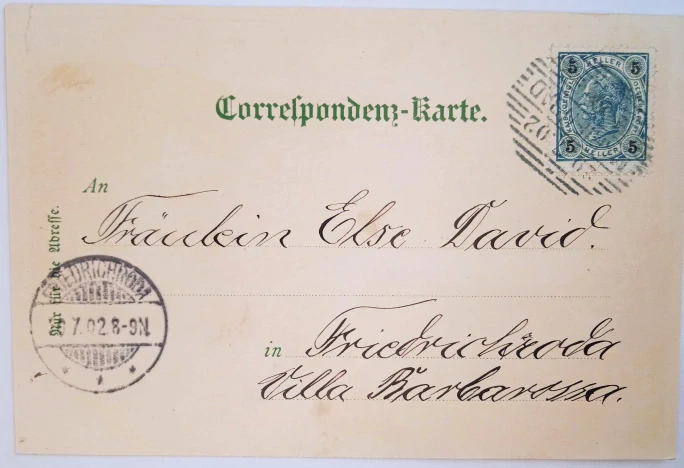 Correspondenz-Karte.
5 HELLER 5
5 HELLER 5
02
An
Fräulein Else David.
Nur für die Adresse.
FRIEDRICHRODA
7.02 8-9N.
in Friedrichroda
Villa Barbarossa.